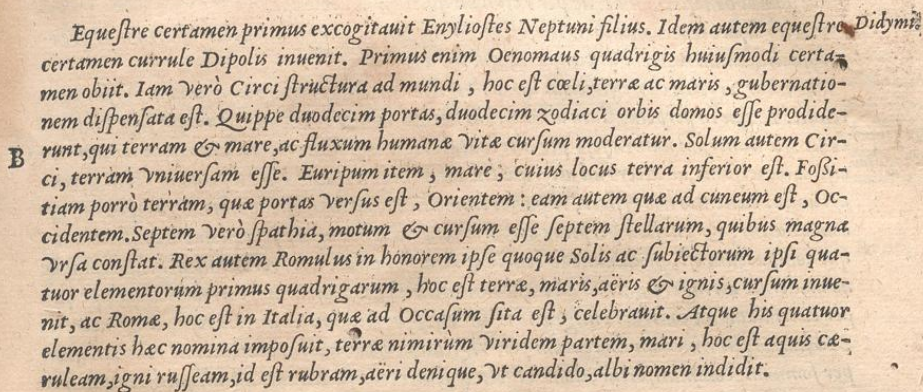 Equeſtre certamen primus excogitauit Enylioſtes Neptuni filius. Idem autem equeſtre Didymi
certamen currule Dipolis inuenit. Primus enim Oenomaus quadrigis huiuſmodi certa-
men obiit. Iam verò Circi ſtructura ad mundi, hoc eſt cœli, terræ ac maris, gubernatio-
nem diſpenſata eſt. Quippe duodecim portas, duodecim zodiaci orbis domos eſſe prodide-
B runt, qui terram & mare, ac fluxum humanæ vitæ curſum moderatur. Solum autem Cir-
ci, terram vniuerſam eſſe. Euripum item, mare, cuius locus terra inferior eſt. Foſſi-
tiam porrò terram, quæ portas verſus eſt, Orientem: eam autem quæ ad cuneum eſt, Oc-
cidentem. Septem verò ſpathia, motum & curſum eſſe ſeptem ſtellarum, quibus magna
vrſa conſtat. Rex autem Romulus in honorem ipſe quoque Solis ac ſubiectorum ipſi qua-
tuor elementorum primus quadrigarum, hoc eſt terræ, maris, aëris & ignis, curſum inue-
nit, ac Romæ, hoc eſt in Italia, quæ ad Occaſum ſita eſt, celebrauit. Atque his quatuor
elementis hæc nomina impoſuit, terræ nimirùm viridem partem, mari, hoc eſt aquis cæ-
ruleam, igni ruſſeam, id eſt rubram, aëri denique, vt candido, albi nomen indidit.